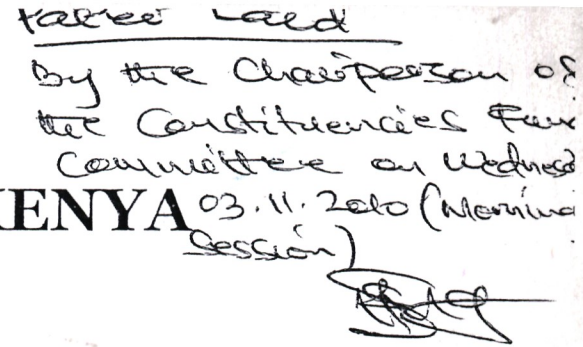 Paper Laid
By the Chairperson of
the Constituencies Fun
Committee on Wednesd
KENYA 03.11.2010 (Morning
Session)